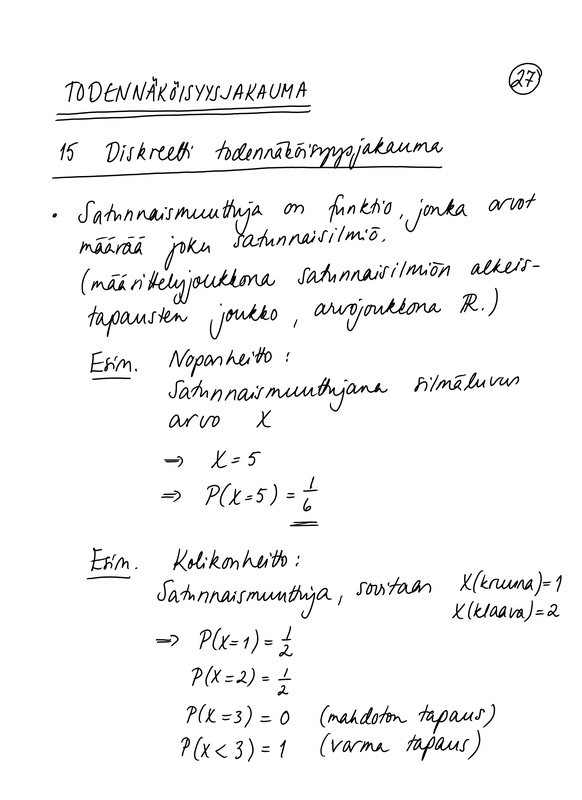 27
TODENNÄKÖISYYSJAKAUMA
15 Diskreetti todennäköisyysjakauma
• Satunnaismuuttuja on funktio, jonka arvot
määrää joku satunnaisilmiö.
(määrittelyjoukkona satunnaisilmiön alkeis-
tapausten joukko, arvojoukkona ℝ.)
Esim. Nopanheitto:
Satunnaismuuttujana silmäluvun
arvo X
⇒ X = 5
⇒ P(X=5) = 1/6
Esim. Kolikonheitto:
Satunnaismuuttuja, sovitaan X(kruuna)=1
X(klaava)=2
⇒ P(X=1) = 1/2
P(X=2) = 1/2
P(X=3) = 0 (mahdoton tapaus)
P(X<3) = 1 (varma tapaus)